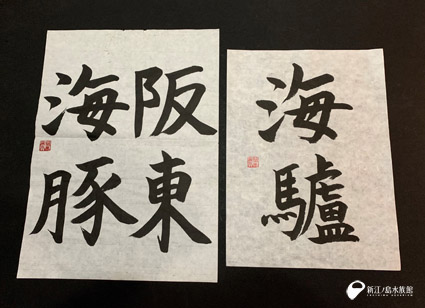 阪東
海豚
海驢
新江ノ島水族館
ENOSHIMA AQUARIUM